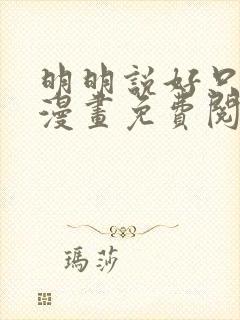 明明說好只
漫畫免費閱
瑪莎